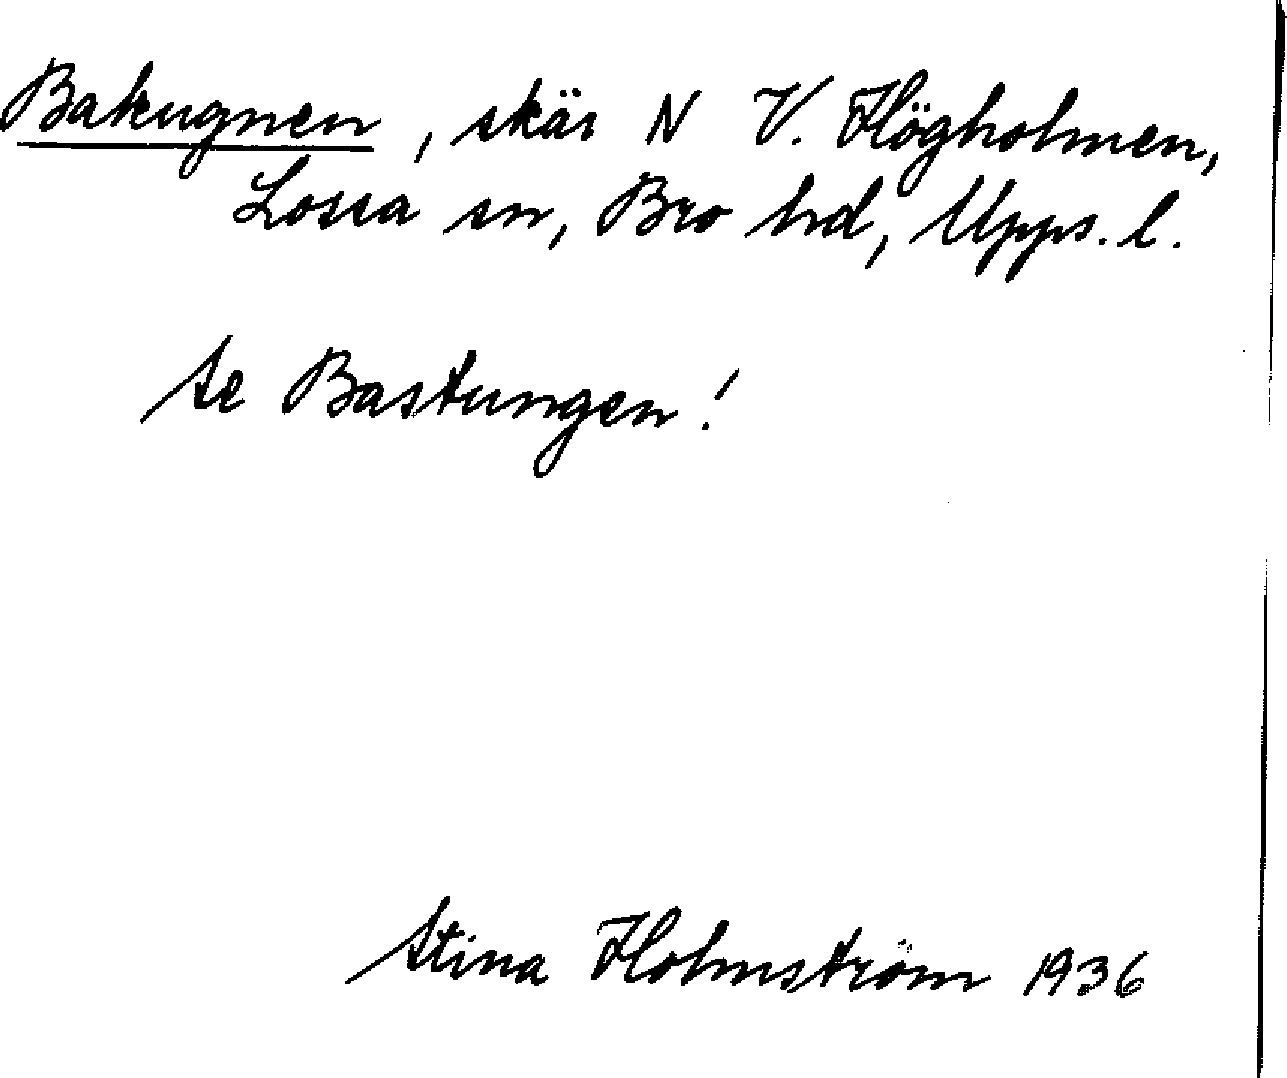 Bakugnen, skär N V. Högholmen,
Lossa sn, Bro hd, Upps. l.
Se Bastungen!
Stina Holmström 1936